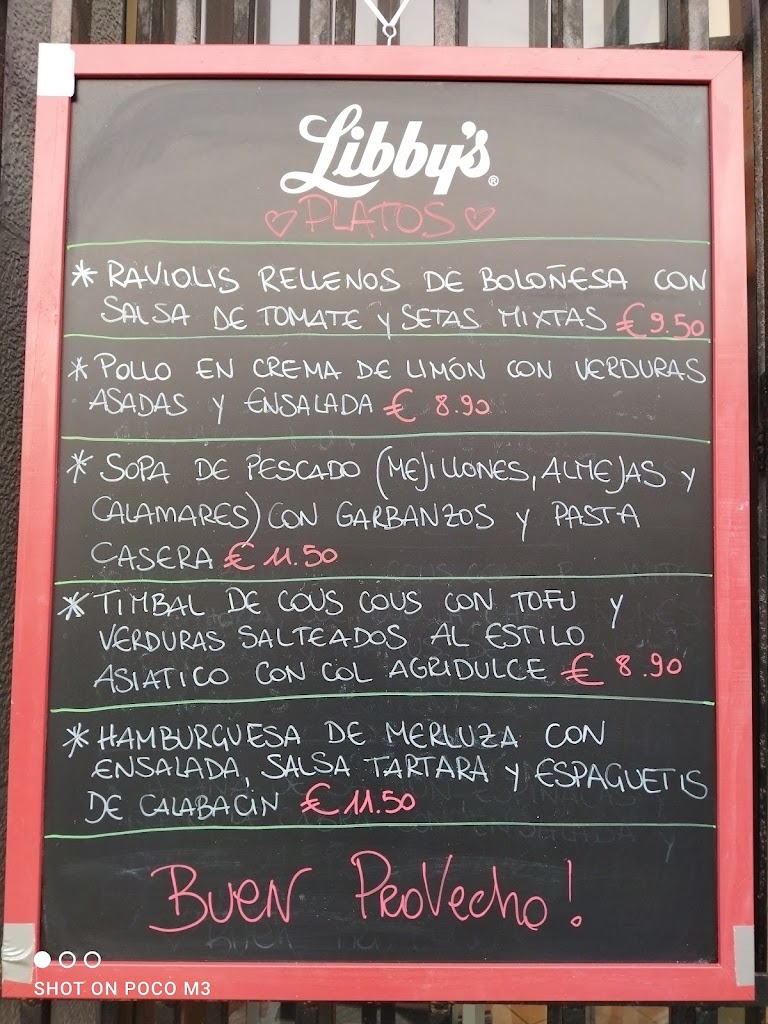 Libby's®
♡ PLATOS ♡
* RAVIOLIS RELLENOS DE BOLOÑESA CON
SALSA DE TOMATE Y SETAS MIXTAS € 9.50
* POLLO EN CREMA DE LIMÓN CON VERDURAS
ASADAS Y ENSALADA € 8.90
* SOPA DE PESCADO (MEJILLONES, ALMEJAS Y
CALAMARES) CON GARBANZOS Y PASTA
CASERA € 11.50
* TIMBAL DE COUS COUS CON TOFU Y
VERDURAS SALTEADOS AL ESTILO
ASIATICO CON COL AGRIDULCE € 8.90
* HAMBURGUESA DE MERLUZA CON
ENSALADA, SALSA TARTARA Y ESPAGUETIS
DE CALABACIN € 11.50
BUEN PROVECHO!
SHOT ON POCO M3